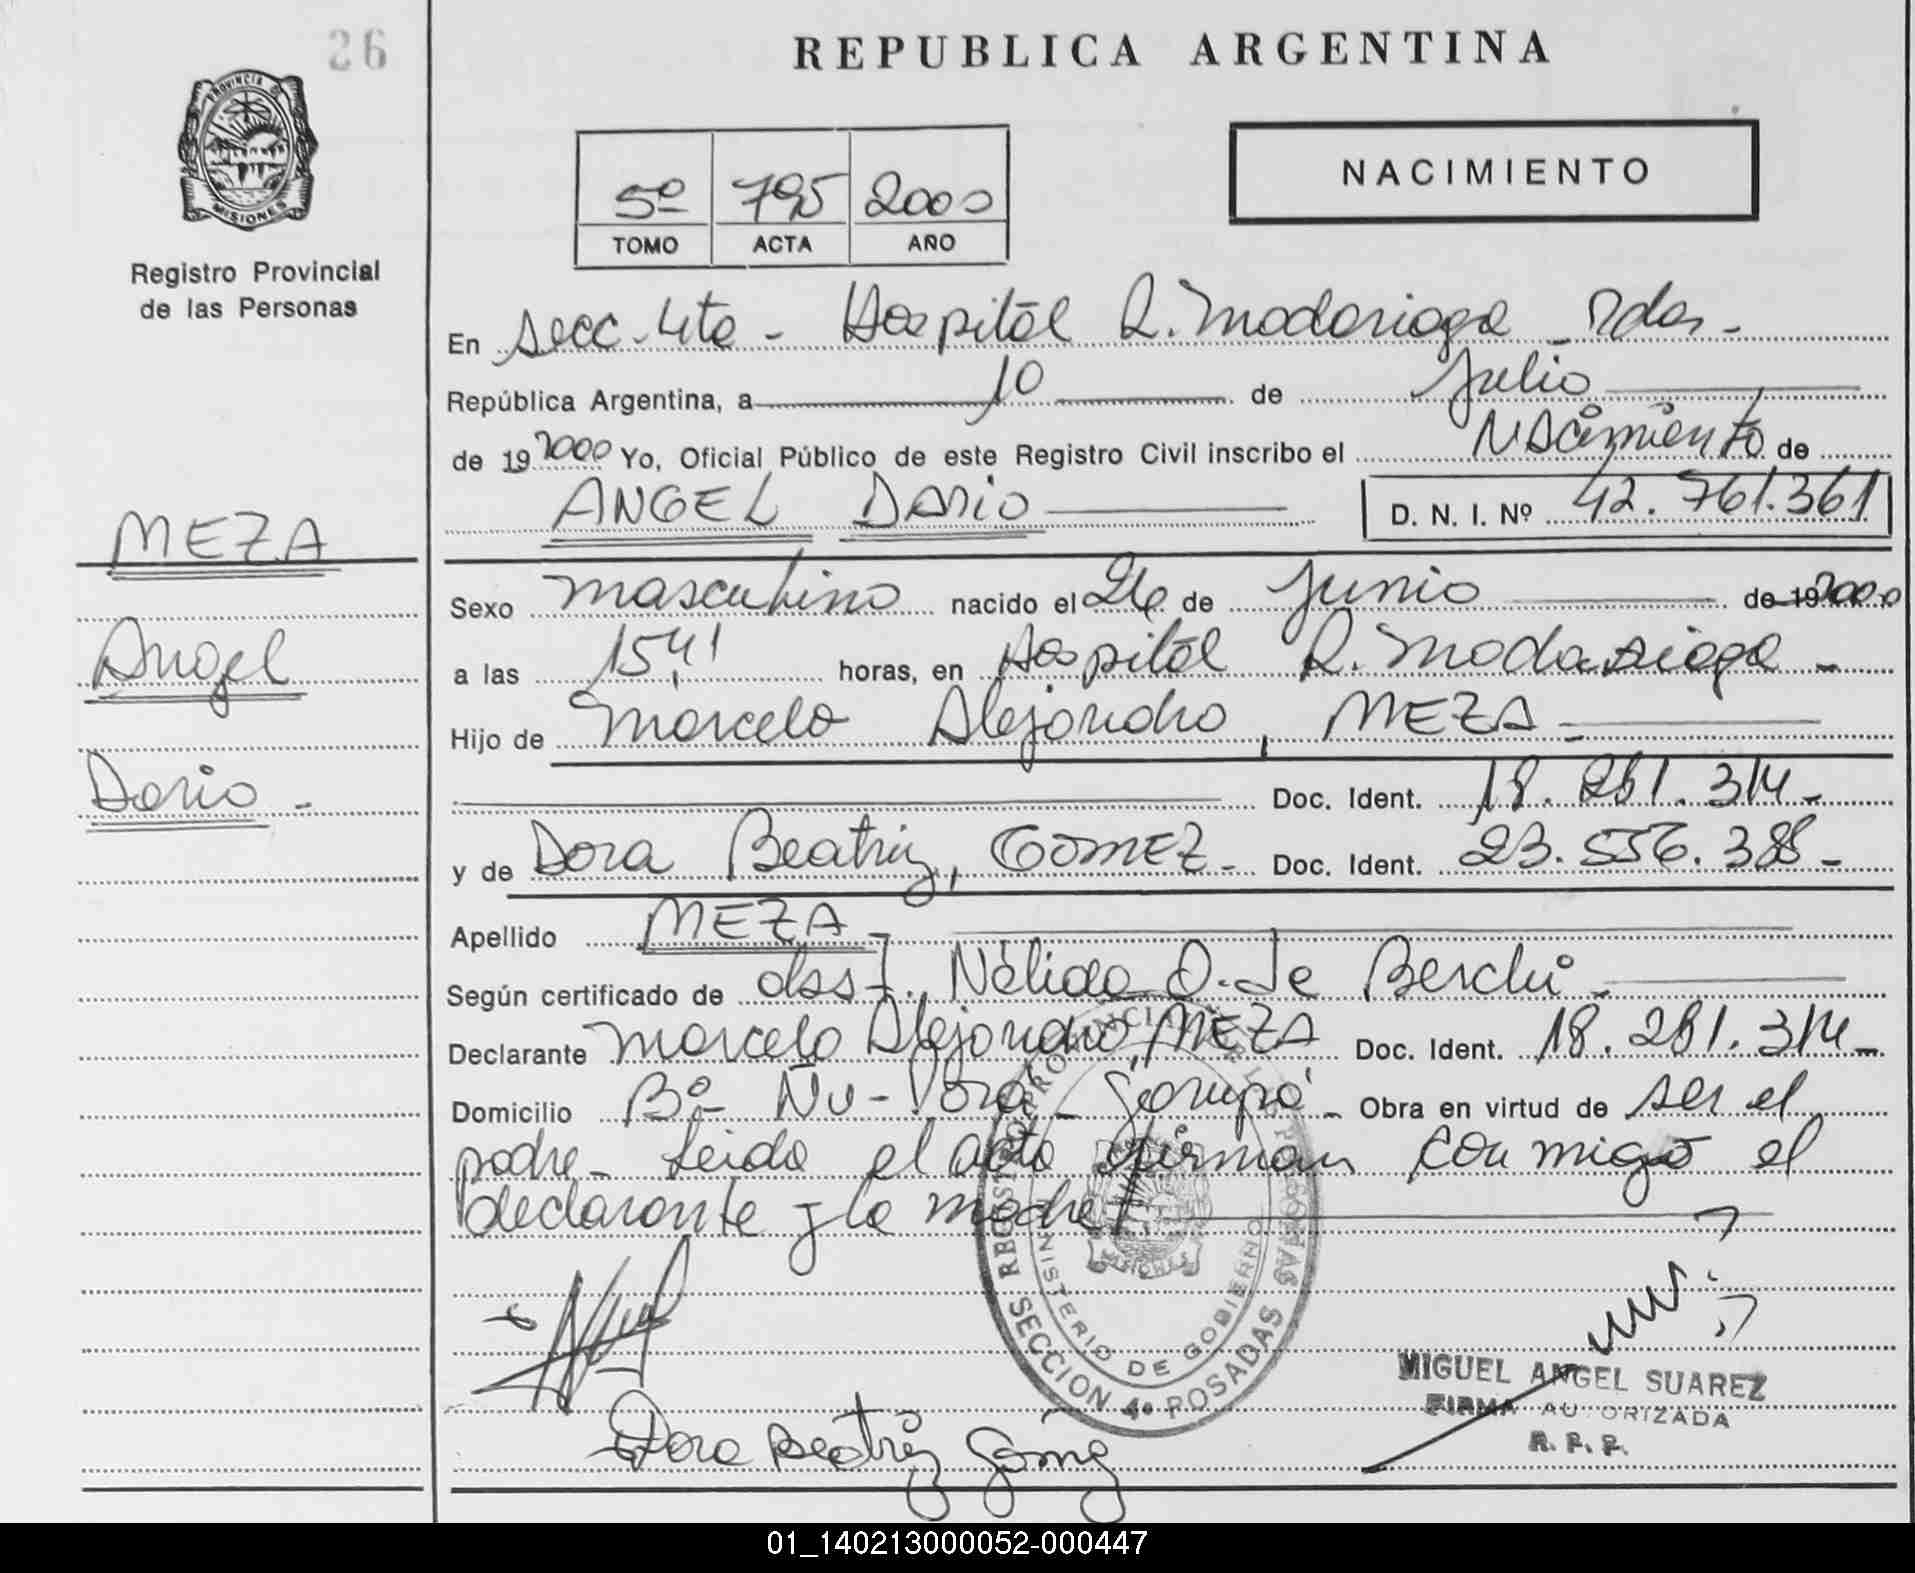 26
REPUBLICA ARGENTINA
PROVINCIA D
MISIONES
Registro Provincial
de las Personas
5º 795 2000
TOMO ACTA AÑO
NACIMIENTO
En Secc. 4ta - Hospital R. Madariaga - Pdas. -
República Argentina, a 10 de Julio
de 19 2000 Yo, Oficial Público de este Registro Civil inscribo el Nacimiento de
ANGEL DARIO D. N. I. Nº 42.761.361
MEZA
Angel
Dario -
Sexo masculino nacido el 26 de Junio de 19 2000
a las 15,41 horas, en Hospital R. Madariaga -
Hijo de Marcelo Alejandro, MEZA -
Doc. Ident. 18.281.314 -
y de Dora Beatriz, GOMEZ - Doc. Ident. 23.556.388 -
Apellido MEZA -
Según certificado de obst. Nélida O. de Berchi -
Declarante Marcelo Alejandro, MEZA Doc. Ident. 18.281.314 -
Domicilio Bº Ñu-Porá - Garupá - Obra en virtud de ser el
padre - Leida el acta firman conmigo el
declarante y la madre
MINISTERIO DE GOBIERNO
SECCION 4ª POSADAS
MISIONES
Dora Beatriz Gómez
MIGUEL ANGEL SUAREZ
FIRMA AUTORIZADA
R. P. P.
01_140213000052-000447